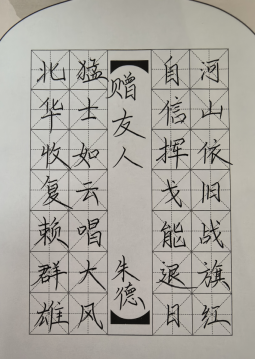 北华收复赖群雄
猛士如云唱大风
赠友人
朱德
自信挥戈能退日
河山依旧战旗红